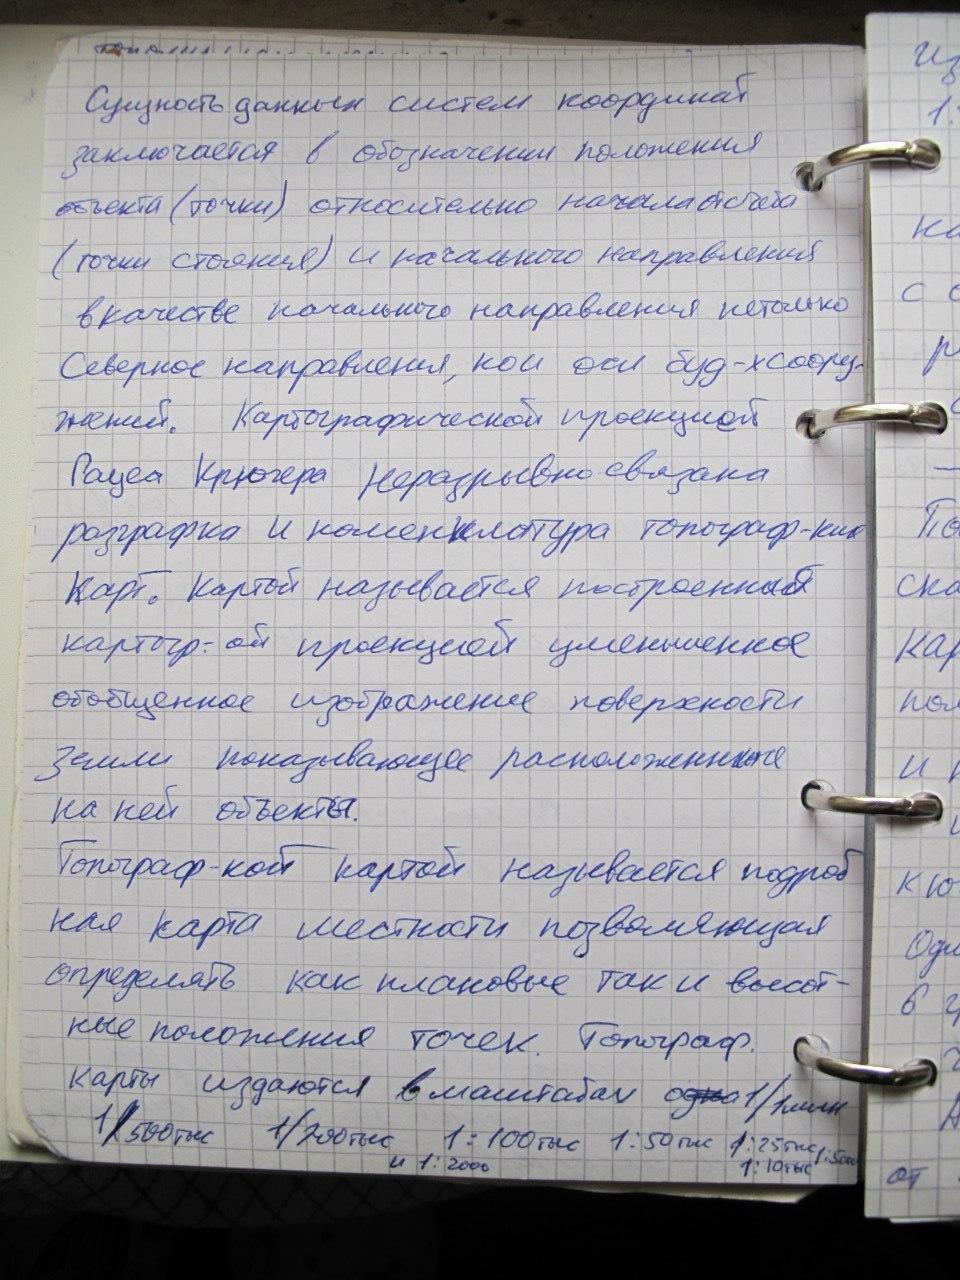 Сущность данных систем координат
заключается в обозначении положения
объекта (точки) относительно начала отсчёта
(точки стояния) и начального направления
в качестве начального направления нетолько
Северное направления, но и оси буд-х соору-
жений. Картографической проекцией
Гауса Крюгера неразрывно связана
разграфка и номенклатура топограф-ких
карт. Картой называется построенный
картогр-ой проекцией уменьшенное
обобщенное изображение поверхности
земли показывающее расположенные
на ней объекты.
Топограф-кой картой называется подроб
ная карта местности позволяющая
определять как плановые так и высот-
ные положения точек. Топограф.
карты издаются в маштабах 1/1млн
1/500тыс 1/200тыс 1:100тыс 1:50тыс 1:25тыс 1:5000
и 1:2000 1:10тыс
из
1:
на
с о
р
с
—
По
ска
кар
пол
и п
и
кю
Одн
б
А
от